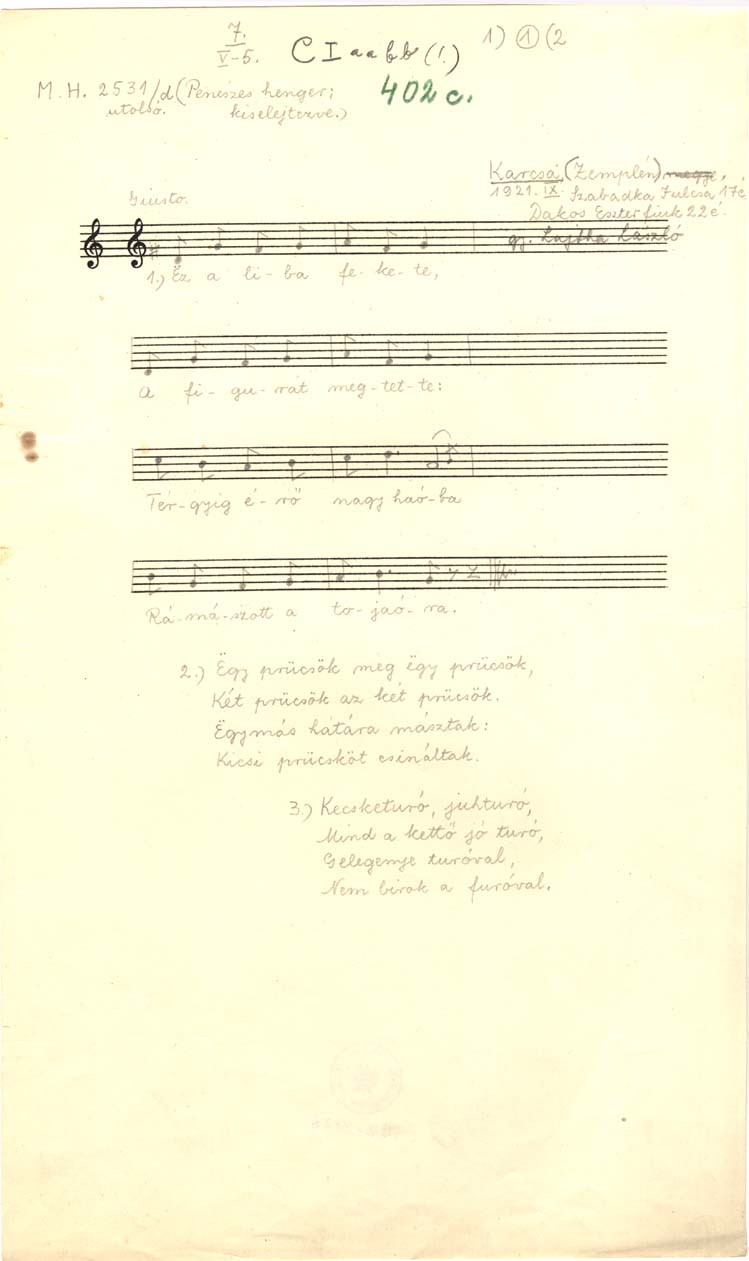 7.
V-5.
C I a a b b (!)
1) 1 (2
M. H. 2531/d (Penészes henger;
utolsó. kiselejtezve.)
402 c.
Karcsa, (Zemplén) megye,
1921. IX. Szabadka Julcsa 17 é
Dakos Eszter 22 é.
gy. Lajtha László
Giusto.
1.) Ëz a li- ba fe- ke- te,
A fi- gu- rát meg- tet- te:
Tér- gyig é- rő nagy haó- ba
Rá- má- szott a to- jaó- ra.
2.) Ëgy prücsök meg ëgy prücsök,
Két prücsök az két prücsök.
Ëgymás hátára másztak:
Kicsi prücsköt csináltak.
3.) Kecsketuró, juhturó,
Mind a kettő jó turó,
Gelegemje turóval,
Nem birok a furóval.